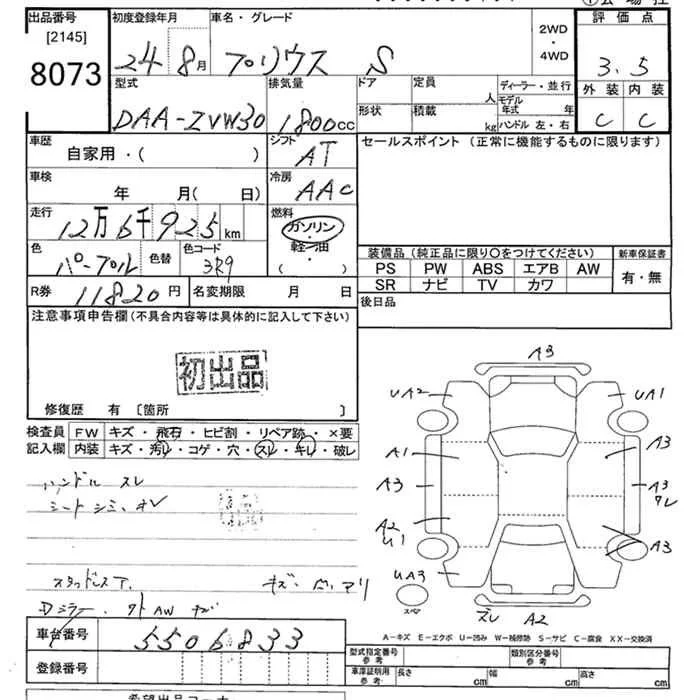 出品番号 初度登録年月 車名・グレード 2WD・4WD 評価点
[2145]
8073 24 8月 プリウス S 3.5
型式 排気量 ドア 定員 人 ディーラー・並行 外装 内装
モデル年式 年
DAA-ZVW30 1800cc 形状 積載 kg ハンドル 左・右 C C
車歴 シフト セールスポイント (正常に機能するものに限ります)
自家用・( ) AT
車検 冷房
年 月( 日) AAC
走行 燃料
12万6千925km ガソリン・軽油
色 パープル 色替 色コード 3R9 ( )
装備品 (純正品に限り○をつけてください) 新車保証書
PS PW ABS エアB AW 有・無
SR ナビ TV カワ
R券 11820円 名変期限 月 日 後日品
注意事項申告欄 (不具合内容等は具体的に記入して下さい)
初出品
修復歴 有 [箇所 ]
検査員 FW キズ・飛石・ヒビ割・リペア跡・×要
記入欄 内装 キズ・汚レ・コゲ・穴・スレ・キレ・破レ
ハンドル スレ
シート シミ
スタッドレスT.
Dミラー
A3
UA2 UA1
A1 A3
A3 A3
ワレ
A2 U1 A3
UA3
スペア
ズレ A2
A-キズ E-エクボ U-凹み W-補修跡 S-サビ C-腐食 XX-交換済
車台番号 5506833
型式指定番号 参考 類別区分番号 参考
登録番号 車庫証明用 参考 長さ cm 幅 cm 高さ cm
希望出品コーナー